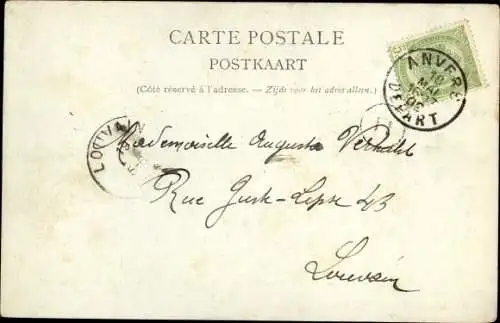 CARTE POSTALE
POSTKAART
(Côté réservé à l'adresse. — Zijde voor het adres alleen.)
ANVERS
10
MAI
02
DEPART
LOUVAIN
Mademoiselle Augusta Verhulst
Rue Juste-Lipse 43
Louvain